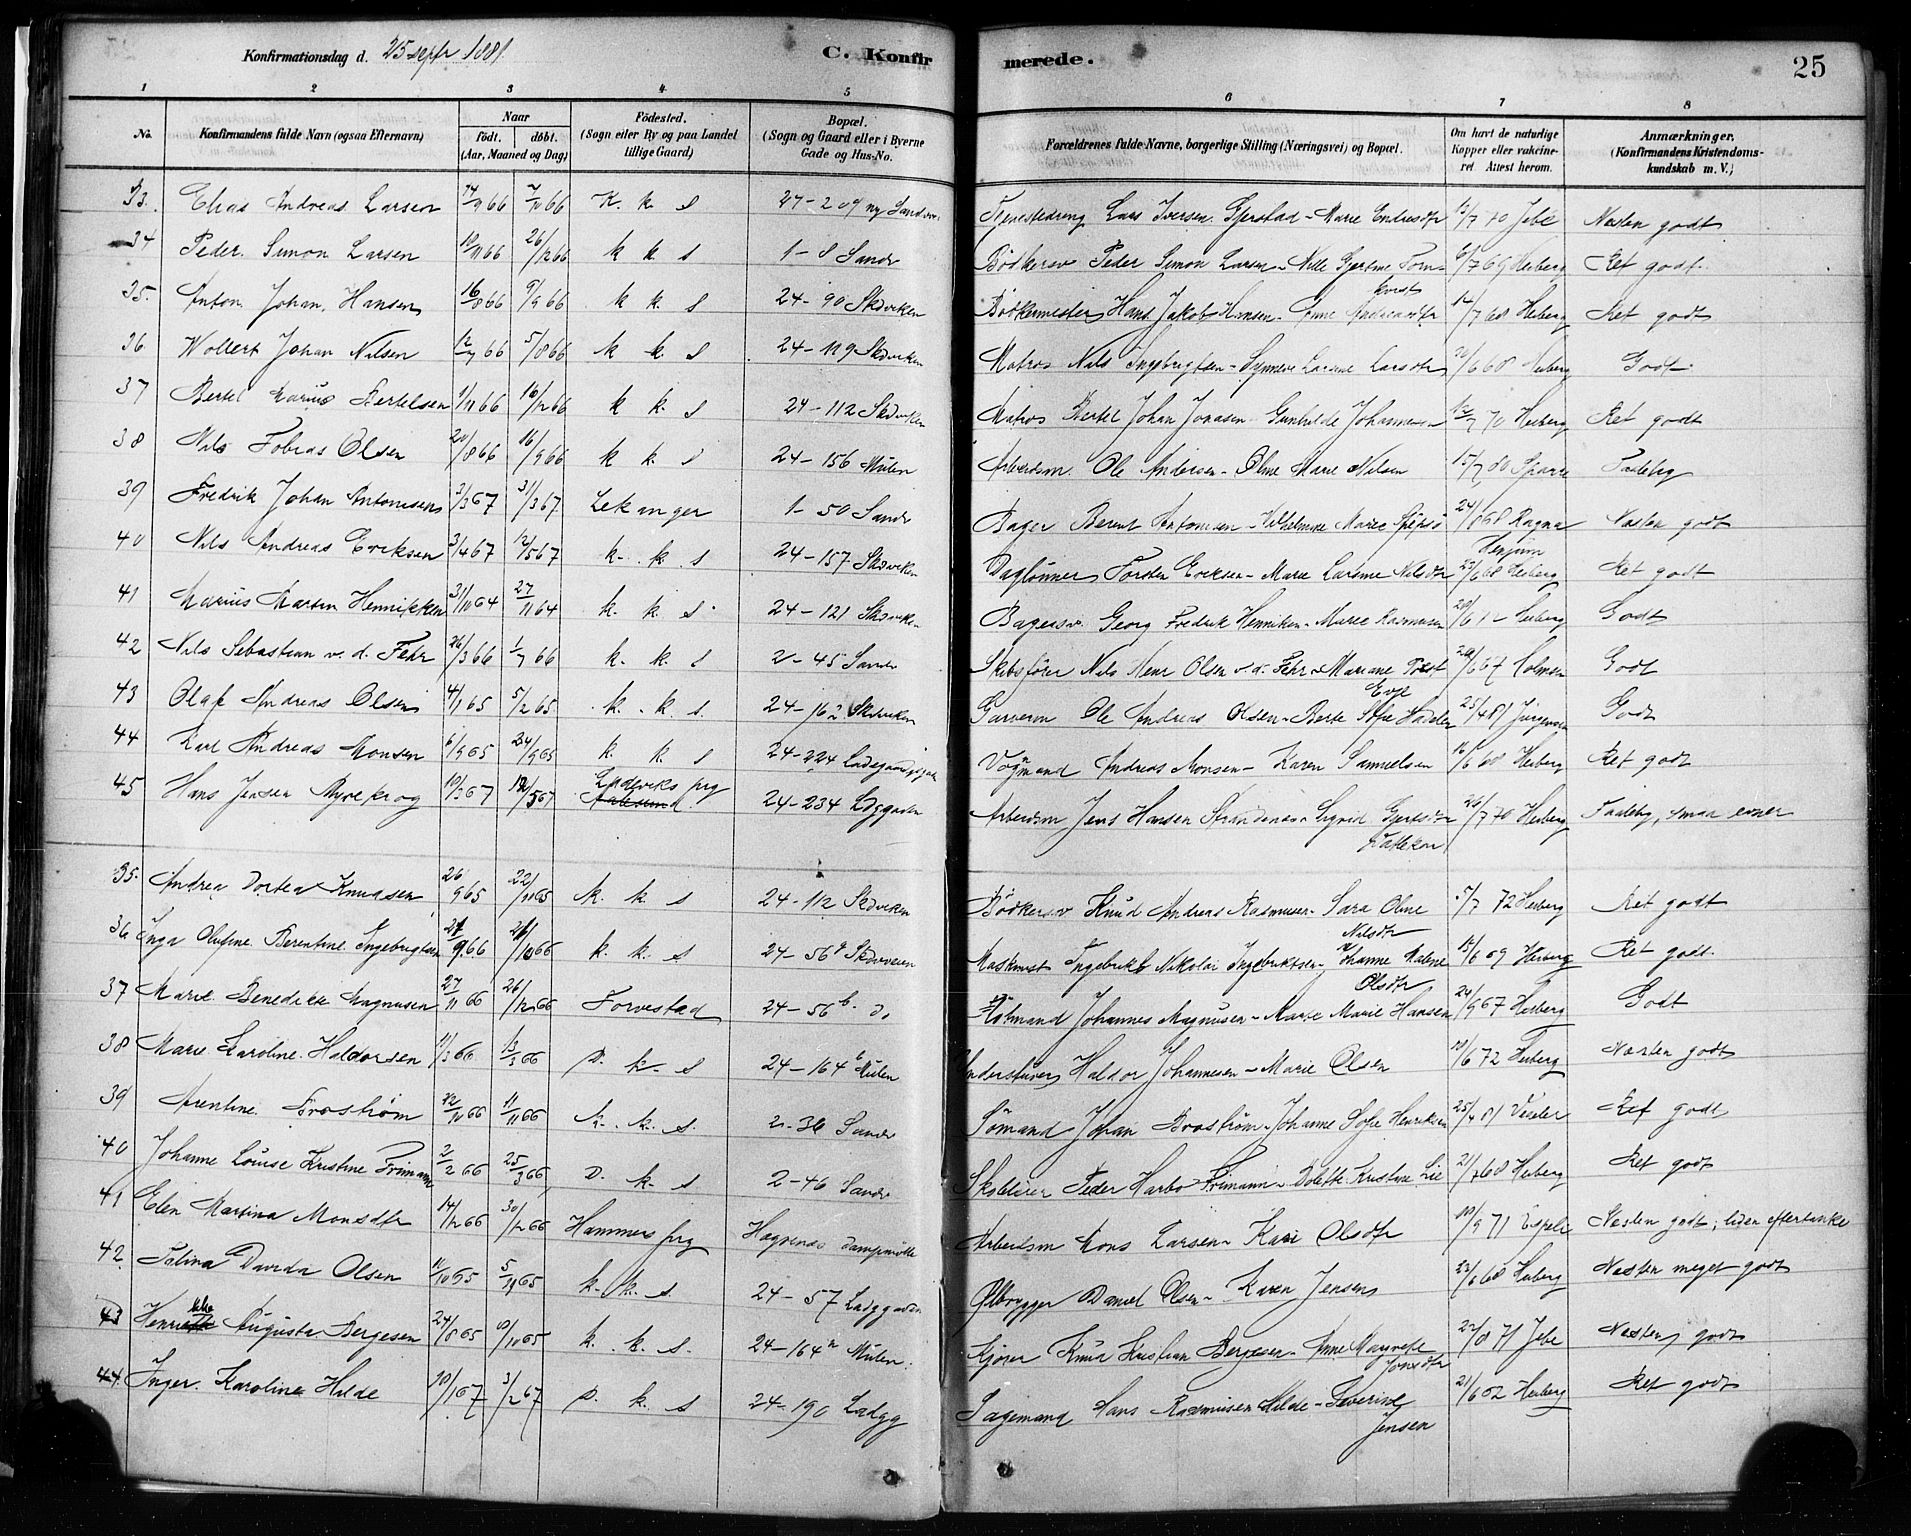 Konfirmationsdag d. 25 septr 1881.
C. Konfirmerede.
25
1 2 3 4 5 6 7 8
No. Konfirmandens fulde Navn (ogsaa Efternavn) Naar født. døbt. (Aar, Maaned og Dag) Fødested. (Sogn eller By og paa Landet tillige Gaard) Bopæl. (Sogn og Gaard eller i Byerne Gade og Hus-No. Forældrenes fulde Navne, borgerlige Stilling (Næringsvei) og Bopæl. Om havt de naturlige Kopper eller vakcineret Attest herom. Anmærkninger. (Konfirmandens Kristendomskundskab m. V.)
33. Elias Andreas Larsen 17/9 66 7/10 66 K. k. s 24-209 ny Sandv. Tjenestedreng Lars Iversen Gjerstad - Marie Endresdtr 13/7 70 Jebe Næsten godt
34 Peder Simon Larsen 10/11 66 26/12 66 k k s 1-8 Sandv Bødkersv Peder Simon Larsen - Nille Gjertine Torn- 6/7 69 Heiberg Ret godt.
35. Anton Johan Hansen 16/8 66 9/9 66 k k s 24-90 Skdviken Bødkermester Hans Jakob Hansen - Anne Andreasdtr 14/7 68 Heiberg Ret godt
36 Wollert Johan Nilsen 12/7 66 5/8 66 k k s 24-119 Skdviken Matros Nils Ingebrigtsen - Synneve Larine Larsdtr 20/6 68 Heiberg Godt.
37 Bertel Marius Bertelsen 1/11 66 16/12 66 k k. s 24-112 Skdviken Matros Bertel Johan Jonasen - Gunhilde Johannesen 12/7 70 Heiberg Ret godt
38 Nils Tobias Olsen 20/8 66 16/9 66 k k. s 24-156 Mulen Arbeidsm. Ole Andersen - Oline Marie Nilsen 15/7 80 Sparre Tadelig
39 Fredrik Johan Antonisens 3/3 67 31/3 67 Lekanger 1-50 Sandv Bager Berent Antonisen - Vilhelmine Marie 24/8 68 Ragna Henjum Næsten godt
40 Nils Andreas Eriksen 3/4 67 12/5 67 k. k. s 24-157 Skdviken Daglønner Torsten Eriksen - Marie Larine Nilsdtr 23/6 68 Heiberg Ret godt
41 Marius Martin Hennikken 31/10 64 27/11 64 k. k s 24-121 Skdviken Bagersv. Georg Fredrik Henniken - Marie Rasmusen Heiberg Godt
42 Nils Sebastian v. d. Fehr 26/3 66 1/7 66 k. k. s 2-45 Sandv Skibsfører Nils Henr Olsen v. d. Fehr - Mariane Tost 20/6 67 Holmsen Godt
43 Olaf Andreas Olsen 4/1 65 5/2 65 k. k s. 24-162 Skdviken Garversv Ole Andreas Olsen - Berte Sofie 25/4 81 Jürgensen Godt
44 Karl Andreas Monsen 6/9 65 24/9 65 k. k s 24-224 Ladegaardsgaden Vognmand Andreas Monsen - Karen Samuelsen 16/6 68 Heiberg Ret godt
45 Hans Jensen Myrekrog 10/3 67 12/5 67 Ladeviks prg 24-234 Ldggaden Arbeidsm Jens Hansen Strandenes - Sigrid Gjertsdtr 26/7 70 Heiberg Tadelig, smaa evner
35. Andrea Dortea Knudsen 26/9 65 22/10 65 k. k s 24-112 Skdviken Bødkersv Knud Andreas Rasmusen - Sara Oline Nilsdtr 5/7 72 Heiberg Ret godt
36 Inga Olufine Berentine Ingebrigtsen 21/9 66 21/10 66 k. k s 24-56 Skdviken Maskinist Ingebrikt Nikolai Ingebriktsen - Johanne Malene Olsdtr 15/6 69 Heiberg Ret godt.
37 Marie Benedikte Magnusen 27/11 66 26/12 66 Torvestad 24-56 b. do Johannes Magnusen - Marie Marie Hansen 24/9 67 Heiberg Godt
38 Marie Karoline Haldorsen D. k s 24-164 b Mulen Understuver Haldor Johannesen - Marie Olsen 18/6 72 Heiberg Næsten godt
39 Arentine Brostrøm 12/10 66 11/11 66 k. k. s. 2-36 Sandv Sømand Johan Brostrøm - Johanne Sofie Henriksen 25/4 81 Ret godt
40 Johanne Louise Kristine Frimann 2/2 66 25/3 66 D. k. s 2-46 Sandv Skolelærer Peder Harbo Frimann - Dolette Kristine Lie 21/7 68 Heiberg Ret godt
41 Elen Martina Monsdtr 14/12 66 30/12 66 Hammers prg Hegrenæs Dampmølle Arbeidsm Mons Larsen - Kari Olsdtr 19/9 71 Espeli Næsten godt; liden eftertanke
42. Talina Davida Olsen 11/10 65 5/11 65 k. k. s 24-57 Ladggaden Ølbrygger Daniel Olsen - Karen Jensens 23/6 68 Heiberg Næsten meget godt
43 Henrikke Augusta Bergesen 24/8 65 10/10 65 k. k. s. 24-164 a Mulen. Kjører Knud Kristian Bergesen - Anne Margrete Jonsdtr 22/8 71 Jebe Næsten godt
44. Inger Karoline Hilde 10/1 67 3/2 67 D. k s 24-190 Ladgg Sagemand Hans Rasmusen Hilde - Severine Jensen 21/6 82 Heiberg Ret godt